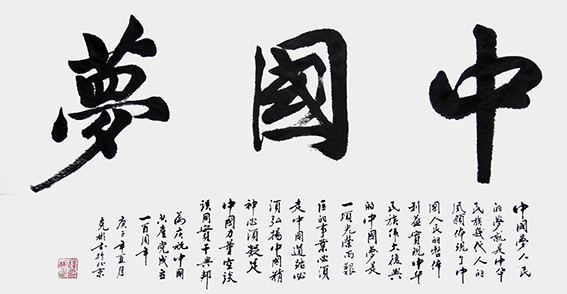 中國夢
中國夢人民
的夢就是中华
民族幾代人的
夙願体現了中
國人民的整体
利益實現中华
民族偉大復興
的中國夢是
一項光榮而艱
巨的事業必須
走中國道路必
須弘揚中國精
神必須凝聚
中國力量空談
誤國實干興邦
為慶祝中國
共產党成立
一百周年
庚子年五月
书於北京